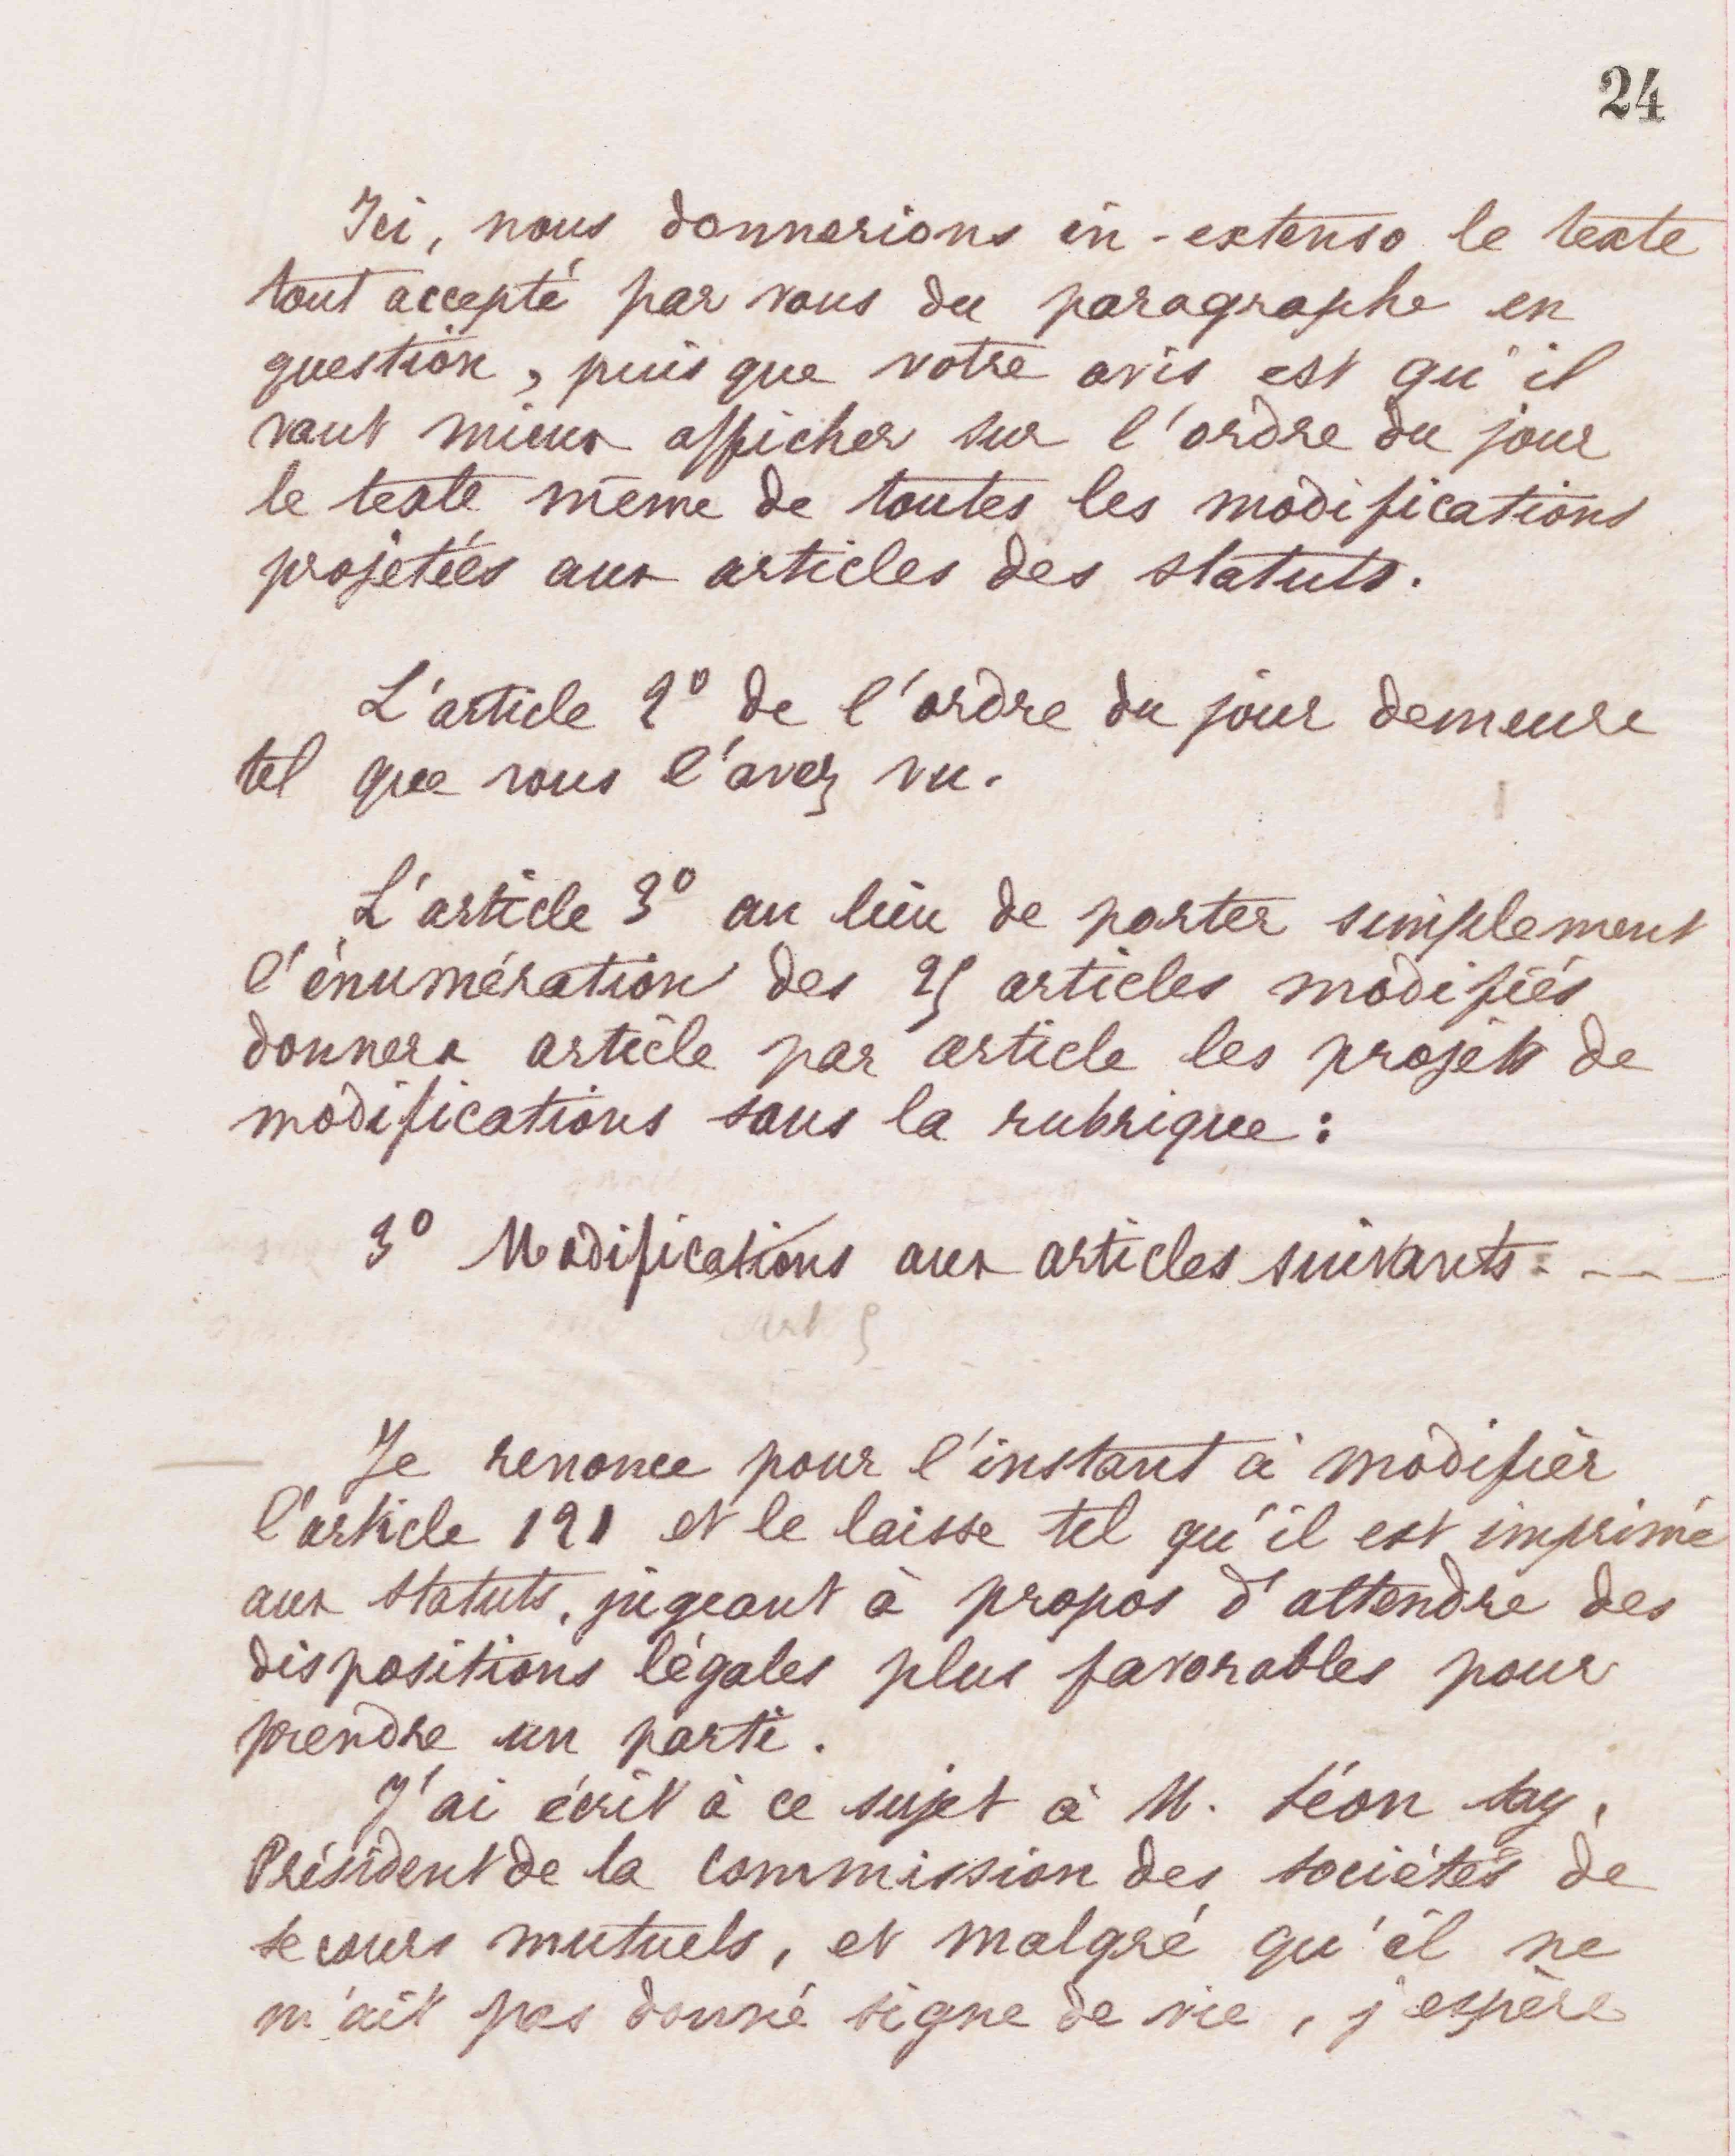 24
Ici, nous donnerions in-extenso le texte
tout accepté par vous du paragraphe en
question, puis que votre avis est qu'il
vaut mieux afficher sur l'ordre du jour
le texte même de toutes les modifications
projetées aux articles des statuts.
L'article 2º de l'ordre du jour demeure
tel que vous l'avez vu.
L'article 3º au lieu de porter simplement
l'énumération des 25 articles modifiés
donnera article par article les projets de
modifications sous la rubrique :
3º Modifications aux articles suivants : ---
Art 5
Je renonce pour l'instant à modifier
l'article 121 et le laisse tel qu'il est imprimé
aux statuts, jugeant à propos d'attendre des
dispositions légales plus favorables pour
prendre un parti.
J'ai écrit à ce sujet à M. Léon Say,
Président de la Commission des sociétés de
secours mutuels, et malgré qu'il ne
m'ait pas donné signe de vie, j'espère